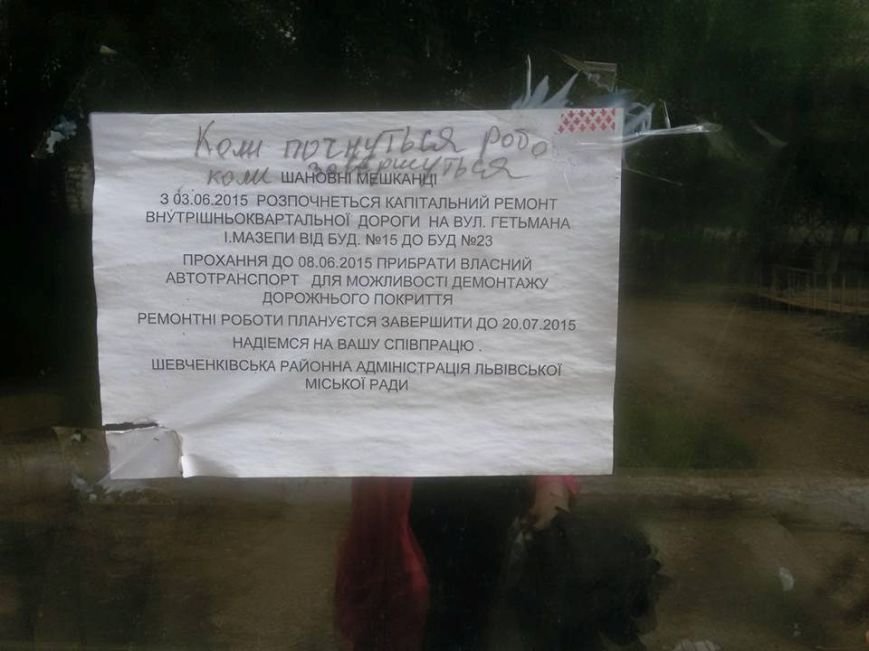 Коли почнуться робо
коли завершуться
ШАНОВНІ МЕШКАНЦІ
З 03.06.2015 РОЗПОЧНЕТЬСЯ КАПІТАЛЬНИЙ РЕМОНТ
ВНУТРІШНЬОКВАРТАЛЬНОЇ ДОРОГИ НА ВУЛ. ГЕТЬМАНА
І.МАЗЕПИ ВІД БУД. №15 ДО БУД №23
ПРОХАННЯ ДО 08.06.2015 ПРИБРАТИ ВЛАСНИЙ
АВТОТРАНСПОРТ ДЛЯ МОЖЛИВОСТІ ДЕМОНТАЖУ
ДОРОЖНЬОГО ПОКРИТТЯ
РЕМОНТНІ РОБОТИ ПЛАНУЄТСЯ ЗАВЕРШИТИ ДО 20.07.2015
НАДІЕМСЯ НА ВАШУ СПІВПРАЦЮ .
ШЕВЧЕНКІВСЬКА РАЙОННА АДМІНІСТРАЦІЯ ЛЬВІВСЬКОЇ
МІСЬКОЇ РАДИ